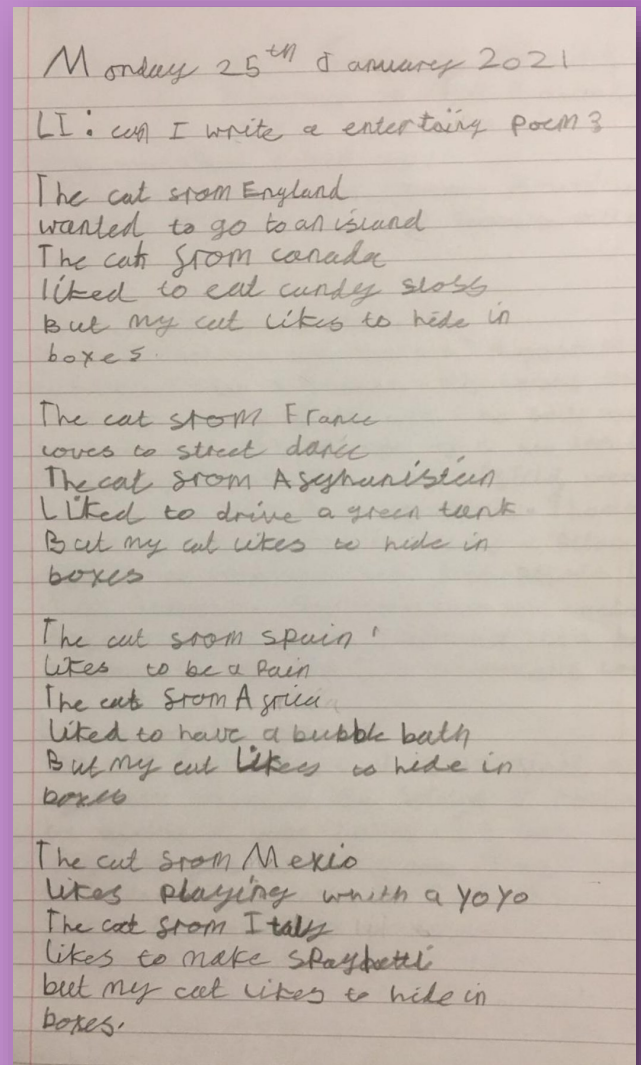 Monday 25th January 2021
LI: can I write a entertaing poem?
The cat from England
wanted to go to an island
The cat from canada
liked to eat candy floss
But my cat likes to hide in
boxes.
The cat from France
loves to street dance
The cat from Afghanistan
Liked to drive a green tank
But my cat likes to hide in
boxes
The cat from spain
likes to be a Pain
The cat from Africa
liked to have a bubble bath
But my cat likes to hide in
boxes
The cat from Mexio
likes playing whith a yoyo
The cat from Italy
likes to make spaghetti
but my cat likes to hide in
boxes.